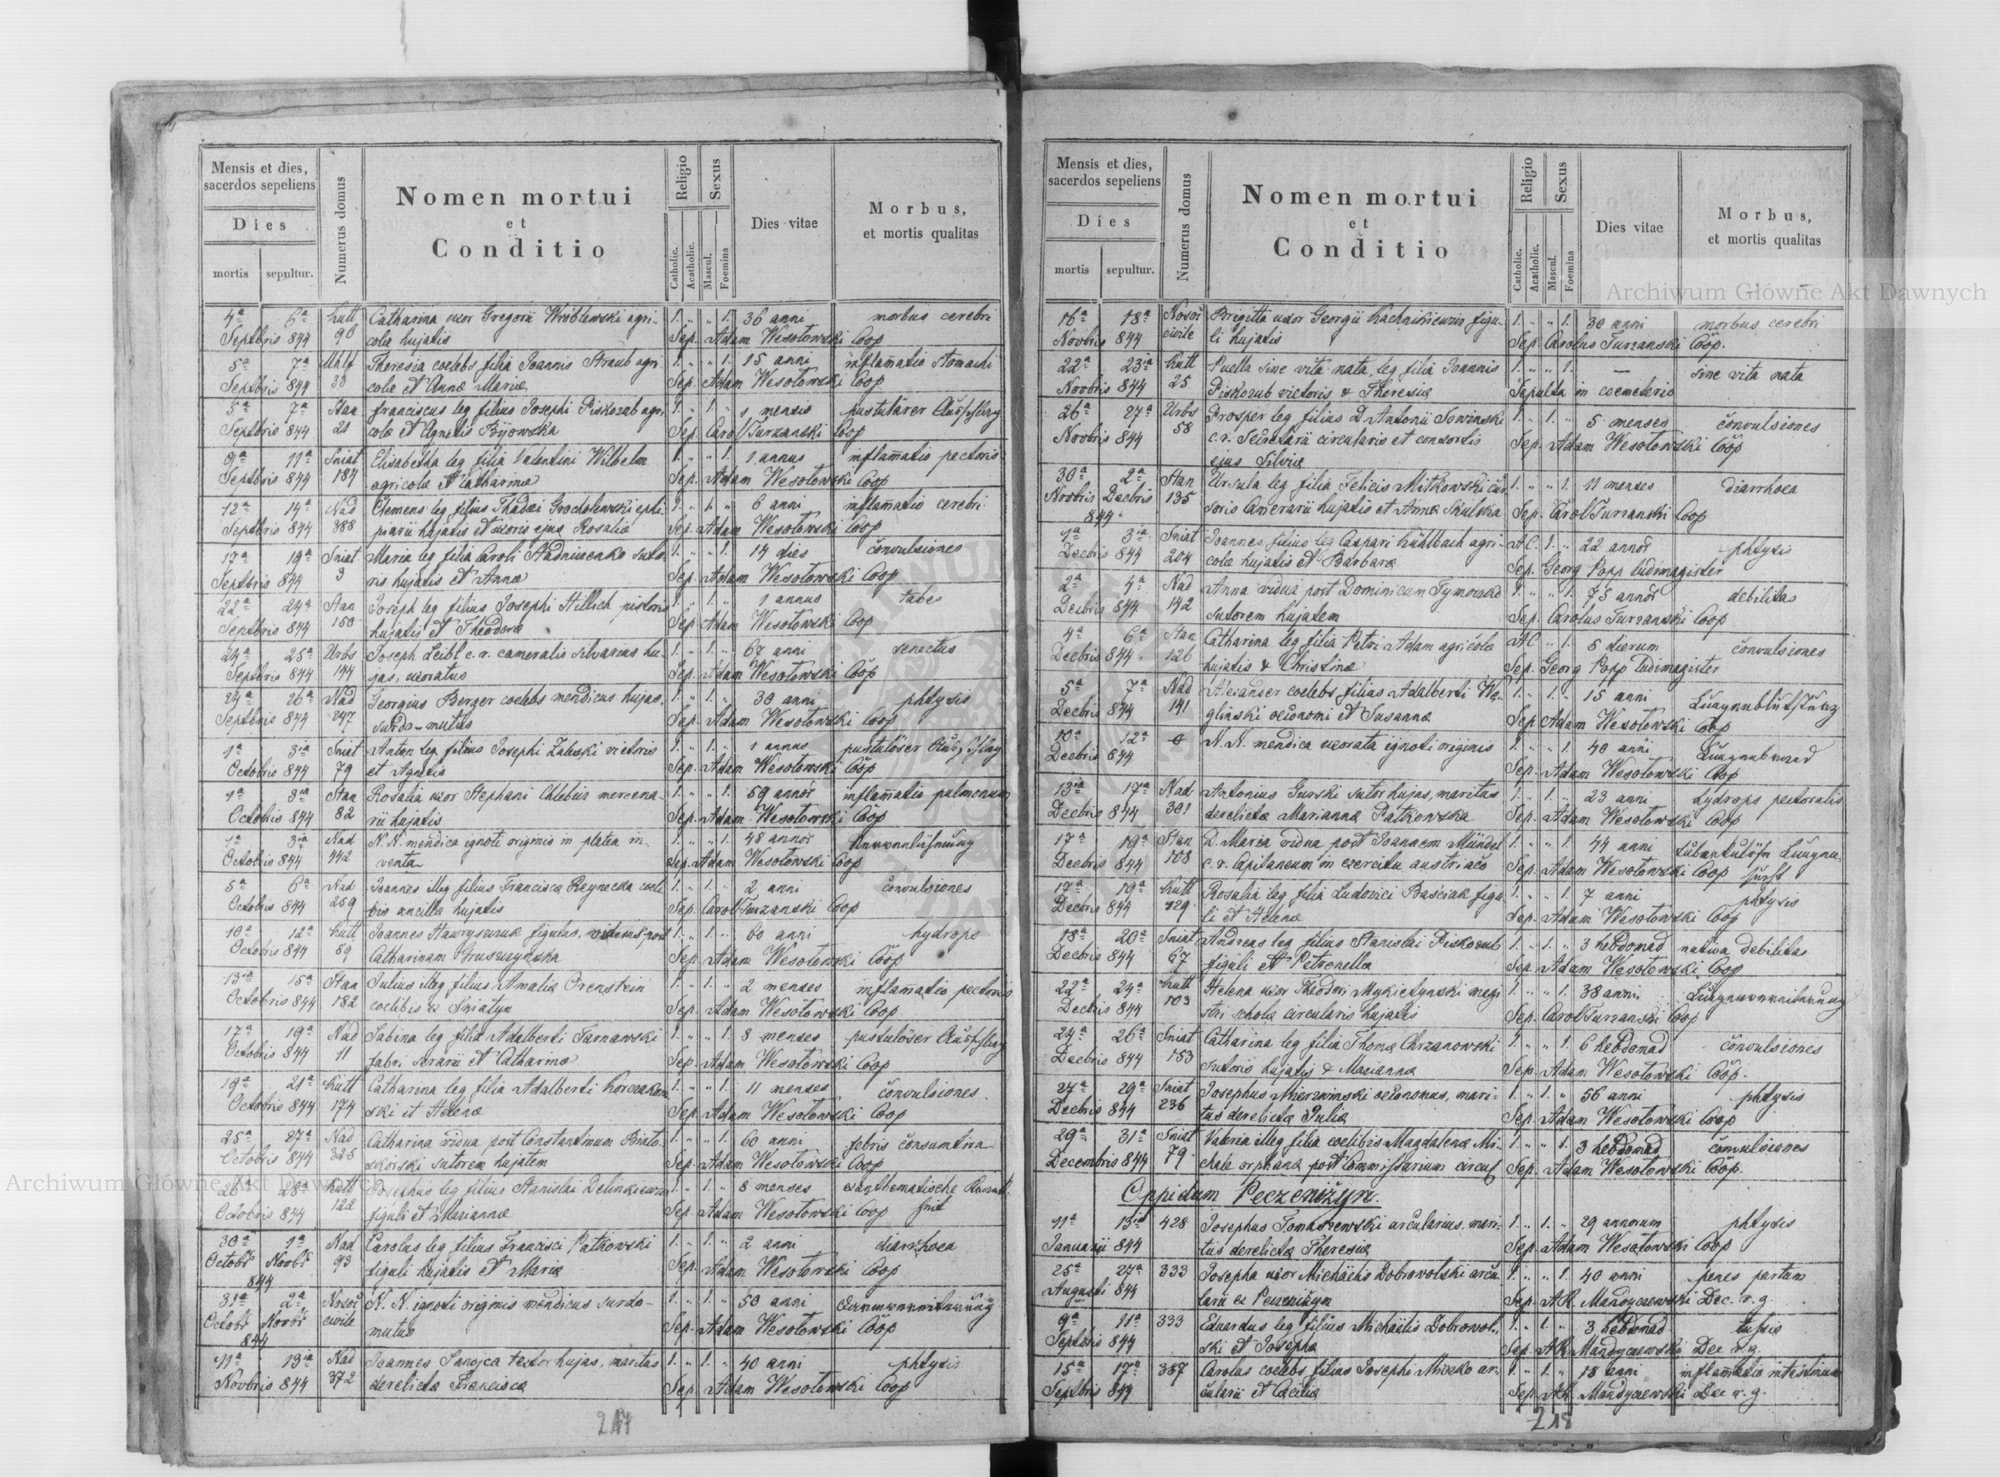 Mensis et dies,
sacerdos sepeliens
Dies
mortis sepultur.
Numerus domus
Nomen mortui
et
Conditio
Religio
Catholic.
Acatholic.
Sexus
Mascul.
Foemina
Dies vitae
Morbus,
et mortis qualitas
4ª 6ª Kutt Catharina uxor Gregorii Wróblewski agri- 1. " " 1. 36 anni morbus cerebri
Septbris 844 90 colæ hujatis Sep. Adam Wesołowski Coop
5ª 7ª Theresia coelebs filia Joannis Straub agri- 1. " " 1. 15 anni inflamatio stomachi
Septbris 844 30 colæ et Annæ Mariæ Sep. Adam Wesołowski Coop
5ª 7ª Stan Franciscus leg filius Josephi Piskozub agri 1. " 1. " 1 mensis
Septbris 844 21 colæ et Agnetis Sep. Carol Turzanski Coop
9ª 11ª Sniat Elisabetha leg filia Valentini Wilhelm 1. " " 1. 1 annus inflamatio pectoris
Septbris 844 187 agricolæ et Catharinæ Sep. Adam Wesołowski Coop
12ª 14ª Nad Clemens leg filius Thadæi Grocholewski ephi- 1. " 1. " 6 anni inflamatio cerebri
Septbris 844 388 piarii hujatis et uxoris ejus Rosaliæ Sep. Adam Wesołowski Coop
17ª 19ª Sniat Maria leg filia Caroli Nadniczenko suto- 1. " " 1. 14 dies convulsiones
Septbris 844 3 ris hujatis et Annæ Sep. Adam Wesołowski Coop
22ª 24ª Stan Joseph leg filius Josephi Hillich pistoris 1. " 1. " 1 annus tabes
Septbris 844 150 hujatis et Theodoræ Sep Adam Wesołowski Coop
24ª 25ª Urbs Joseph Leibl c. r. cameralis silvarius hu- 1. " 1. " 67 anni senectus
Septbris 844 144 jas, uxoratus Sep. Adam Wesołowski Coop
24ª 26ª Nad Georgius Berger coelebs mendicus hujas, 1. " 1. " 30 anni phtysis
Septbris 844 247 surdo-mutus Sep. Adam Wesołowski Coop
1ª 3ia Sniat Anton leg filius Josephi Zaleski vietoris 1. " 1. " 1 annus
Octobris 844 79 et Agnetis Sep. Adam Wesołowski Coop
1ª 3ia Stan Rosalia uxor Stephani Chlebus mercena- 1. " " 1. 59 annor inflamatio pulmonum
Octobris 844 82 rii hujatis Sep. Adam Wesołowski Coop
1ª 3ia Nad N. N. mendica ignoti originis in platea in- 1. " " 1. 48 annor
Octobris 844 442 venta Sep. Adam Wesołowski Coop
5ª 6ª Nad Joannes illeg filius Franciscæ Reynecka coeli- 1. " 1. " 2 anni convulsiones
Octobris 844 259 bis ancillæ hujatis Sep. Carol Turzanski Coop
10ª 12ª Kutt Joannes Hawryszczuk figulus, viduus post 1. " 1. " 60 anni hydrops
Octobris 844 89 Catharinam Gruszczynska Sep Adam Wesołowski Coop
13ia 15ª Stan Julius illeg filius Amaliæ Orenstein 1. " 1. " 2 menses inflamatio pectoris
Octobris 844 182 coelibis ex Sniatyn Sep. Adam Wesołowski Coop
17ª 19ª Nad Sabina leg filia Adalberti Tarnawski 1. " " 1. 8 menses
Octobris 844 11 fabri ferarii et Catharinæ Sep Adam Wesołowski Coop
19ª 21ª Kutt Catharina leg filia Adalberti 1. " " 1. 11 menses convulsiones
Octobris 844 174 ski et Helenæ Sep. Adam Wesołowski Coop
25ª 27ª Nad Catharina vidua post Constantinum Biało- 1. " " 1. 60 anni febris consumtiva
Octobris 844 328 skórski sutorem hujatem Sep. Adam Wesołowski Coop
28ª Kutt Josephus leg filius Stanislai 1. " 1. " 8 menses
Octobris 844 122 figuli et Mariannæ Sep. Adam Wesołowski Coop
30ª 1ª Nad Carolus leg filius Francisci Patkowski 1. " 1. " 2 anni diarrhoea
Octobr Novbr 93 figuli hujatis et Mariæ Sep. Adam Wesołowski Coop
844
31ª 2ª N. N. ignoti originis mendicus surdo- 1. " 1. " 50 anni
Octobr Novbr civile mutus Sep. Adam Wesołowski Coop
844
11ª 13ia Nad Joannes Sanojca textor hujas, maritus 1. " 1. " 40 anni phtysis
Novbris 844 372 derelictæ Franciscæ Sep. Adam Wesołowski Coop
217
Mensis et dies,
sacerdos sepeliens
Dies
mortis sepultur.
Numerus domus
Nomen mortui
et
Conditio
Religio
Catholic.
Acatholic.
Sexus
Mascul.
Foemina
Dies vitae
Morbus,
et mortis qualitas
16ª 18ª Brigitta uxor Georgii figu- 1. " " 1. 30 anni morbus cerebri
Novbris 844 civile li hujatis Sep. Carolus Turzanski Coop.
22ª 23ia Kutt Puella sine vita nata, leg filia Joannis 1. " " 1. — sine vita nata
Novbris 844 25 Piskozub vietoris & Theresiæ Sepulta in coemeterio
26ª 27ª Urbs Prosper leg filius D. Antonii c. 1. " 1. " 5 menses convulsiones
Novbris 844 58 c. r. Secretarii circularis et consortis Sep. Adam Wesołowski Coop
ejus Silviæ
30ª 2ª Stan Ursula leg filia Felicis Mitkowski cur- 1. " " 1. 11 menses diarrhoea
Novbris Decbris 135 soris Camerarii hujatis et Annæ Skulska Sep. Carol Turzanski Coop
844
1ª 3ia Sniat Joannes filius leg Caspari Kühlbach agri- AC. 1. " 22 annor phtysis
Decbris 844 204 colæ hujatis et Barbaræ Sep. Georg Popp ludimagister
2ª 4ª Nad Anna vidua post Dominicum 1. " " 1. 75 annor debilitas
Decbris 844 142 sutorem hujatem Sep Carolus Turzanski Coop
4ª 6ª Stan Catharina leg filia Petri Adam agricolæ AC " " 1. 5 dierum convulsiones
Decbris 844 126 hujatis & Christinæ Sep. Georg Popp ludimagister
5ª 7ª Nad Alexander coelebs filius Adalberti We- 1. " 1. " 15 anni
Decbris 844 141 gliński oeconomi et Susannæ Sep Adam Wesołowski Coop
10ª 12ª 0 N. N. mendica uxorata ignoti originis 1. " " 1. 40 anni
Decbris 844 Sep. Adam Wesołowski Coop
13ia Nad Antonius Gurski sutor hujas, maritus 1. " 1. " 23 anni hydrops pectoralis
Decbris 844 301 derelictæ Mariannæ Patkowska Sep. Adam Wesołowski Coop
17ª 19ª Stan D. Maria vidua post Joannem Mündel 1. " " 1. 44 anni
Decbris 844 108 c. r. Capitaneum in exercitu austriaco Sep. Adam Wesołowski Coop
17ª 19ª Kutt Rosalia leg filia Ludovici Baściak figu- 1. " " 1. 7 anni phtysis
Decbris 844 129 li et Helenæ Sep. Adam Wesołowski Coop
18ª 20ª Sniat Andreas leg filius Stanislai Piskozub 1. " 1. " 3 hebdomad nativa debilitas
Decbris 844 67 figuli et Petronellæ Sep. Adam Wesołowski Coop
22ª 24ª Kutt Helena uxor Theodori Mykietynski magi- 1. " " 1. 38 anni
Decbris 844 103 stri scholæ circularis hujatis Sep. Carol Turzanski Coop
24ª 26ª Sniat Catharina leg filia Thomæ Chrzanowski 1. " " 1. 6 hebdomad convulsiones
Decbris 844 153 sutoris hujatis & Mariannæ Sep. Adam Wesołowski Coop.
27ª 29ª Sniat Josephus Mierzwinski oeconomus, mari- 1. " 1. " 56 anni phtysis
Decbris 844 236 tus derelictæ Juliæ Sep. Adam Wesołowski Coop
29ª 31ª Sniat Valeria illeg filia coelibis Magdalenæ Mi- 1. " " 1. 3 hebdomad convulsiones
Decembris 844 79 chale orphanæ post Commissarium circul Sep. Adam Wesołowski Coop.
Oppidum Peczeniżyn.
11ª 13ia 428 Josephus Tomaszewski arcularius, mari- 1. " 1. " 29 annorum phtysis
Januarii 844 tus derelictæ Theresiæ Sep. Adam Wesołowski Coop
25ª 27ª 333 Josepha uxor Michaelis Dobrowolski arcu- 1. " " 1. 40 anni penes partum
Augusti 844 larii ex Peczeniżyn Sep. A.R. Mandyczewski Dec. r. g.
9ª 11ª 333 Eduardus leg filius Michaelis Dobrowol- 1. 1. " 3 hebdomad tussis
Septbris 844 ski et Josephæ Sep. A.R. Mandyczewski Dec r. g.
15ª 17ª 387 Carolus coelebs filius Josephi Miczko ar- 1. " 1. " 18 anni inflamatio intestinorum
Septbris 844 cularii et Cæciliæ Sep. A.R. Mandyczewski Dec r. g.
218
Archiwum Główne Akt Dawnych
Archiwum Główne Akt Dawnych